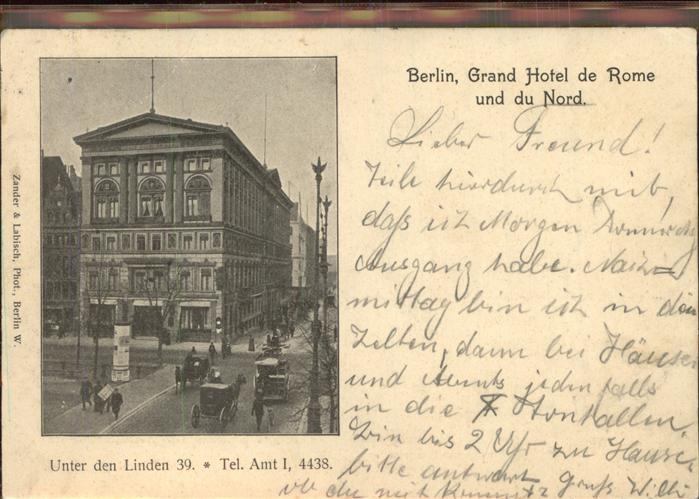 Berlin, Grand Hotel de Rome
und du Nord.
Lieber Freund!
Teile hierdurch mit,
daß ich Morgen Donnerstag
Ausgang habe. Nach=
mittag bin ich in den
Zelten, dann bei Häusler
und Abends jedenfalls
in die
Bin bis 2 Uhr zu Hause.
bitte antwort Gruß Willi
ob du mit kommst
Zander & Labisch, Phot., Berlin W.
Unter den Linden 39. * Tel. Amt I, 4438.